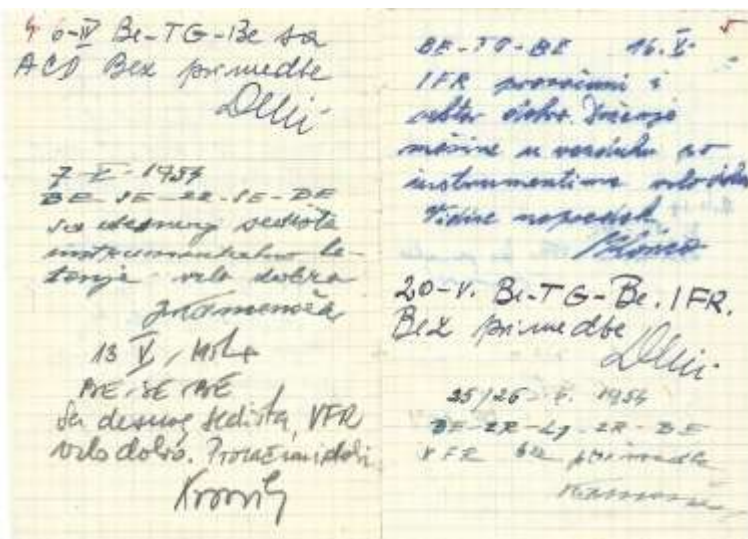 4
6-IV Be-TG-Be sa
ACD Bez primedbe
7-V-1954
BE-SE-ZR-SE-BE
Sa desnog sedišta
instrumentalno le-
tenje vrlo dobro
13 V, 
BE-SE-BE
Sa desnog sedišta, VFR
vrlo dobro. Proračuni dobri.
5
BE-TG-BE 16.V
IFR proračuni i
dobro. Držanje
mašine u vazduhu po
instrumentima vrlo dobro
Vidim napredak.
20-V. Be-TG-Be. IFR.
Bez primedbe
25/26 1954
BE-ZR-LJ-ZR-BE
VFR bez primedbe